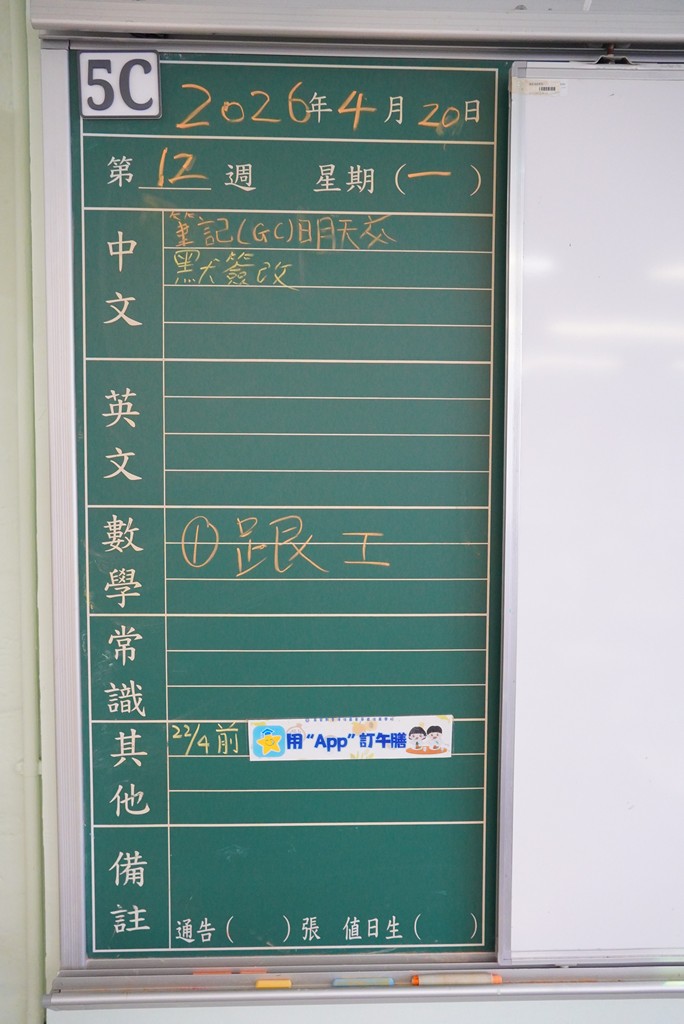 5C
2026年4月20日
第12週 星期(一)
中文
筆記(GC)明天交
默簽改
英文
數學
① 跟工
常識
其他
22/4前
用“App”訂午膳
備註
通告( )張 值日生( )